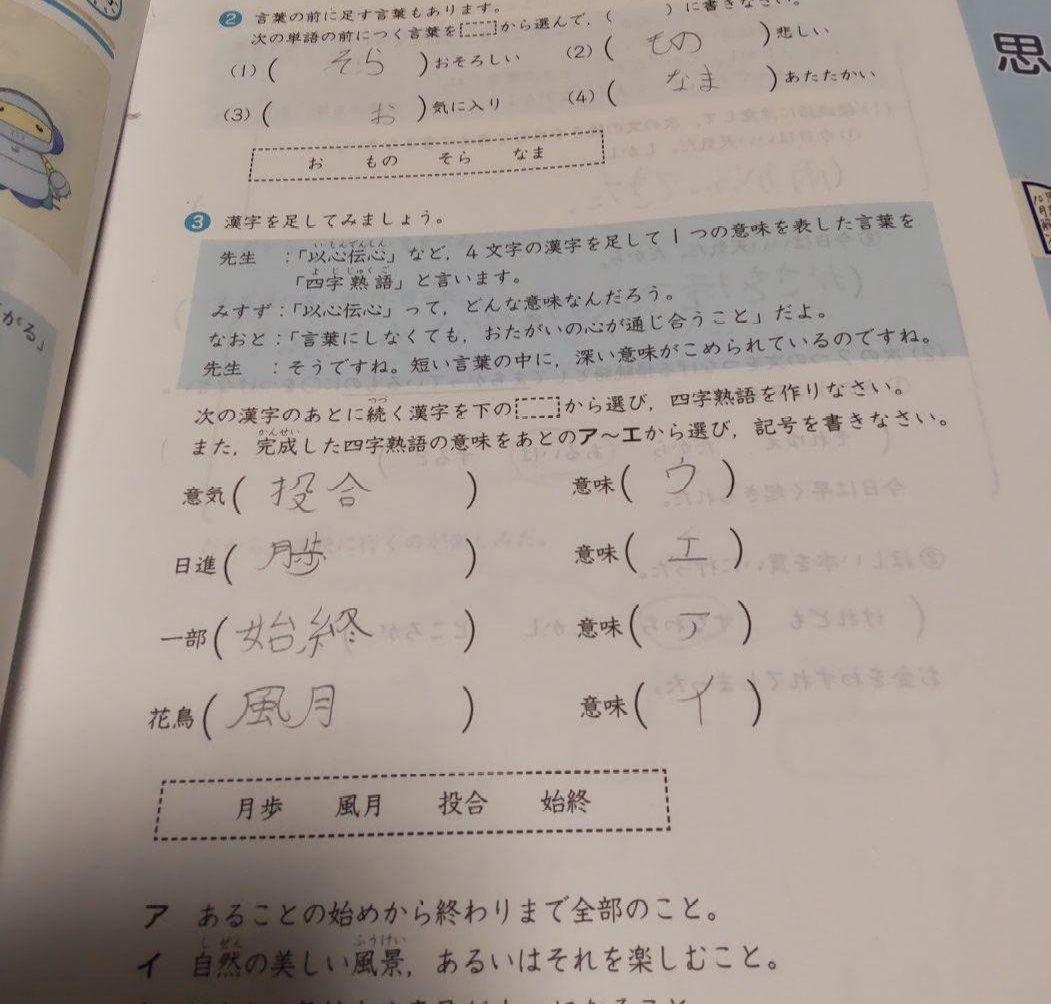 がる」
思
❷ 言葉の前に足す言葉もあります。
次の単語の前につく言葉を から選んで，( )に書きなさい。
(1) ( そら )おそろしい (2) ( もの )悲しい
(3) ( お )気に入り (4) ( なま )あたたかい
お もの そら なま
❸ 漢字を足してみましょう。
いしんでんしん
先生 ：「以心伝心」など，4文字の漢字を足して1つの意味を表した言葉を
よじじゅくご
「四字熟語」と言います。
みすず：「以心伝心」って，どんな意味なんだろう。
なおと：「言葉にしなくても，おたがいの心が通じ合うこと」だよ。
先生 ：そうですね。短い言葉の中に，深い意味がこめられているのですね。
つづ
次の漢字のあとに続く漢字を下の から選び，四字熟語を作りなさい。
かんせい
また，完成した四字熟語の意味をあとのア～エから選び，記号を書きなさい。
意気( 投合 ) 意味( ウ )
日進( 月歩 ) 意味( エ )
一部( 始終 ) 意味( ア )
花鳥( 風月 ) 意味( イ )
月歩 風月 投合 始終
ア あることの始めから終わりまで全部のこと。
しぜん ふうけい
イ 自然の美しい風景，あるいはそれを楽しむこと。